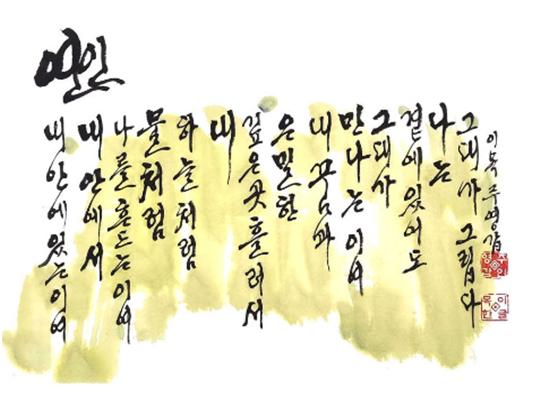 연인
내 안에 있는 이여
내 안에서
나를 흔드는 이여
물처럼
하늘처럼
내
깊은 곳 흘러서
은밀한
내 꿈과
만나는 이여
그대가
곁에 있어도
나는
그대가 그립다
이목 주영갑